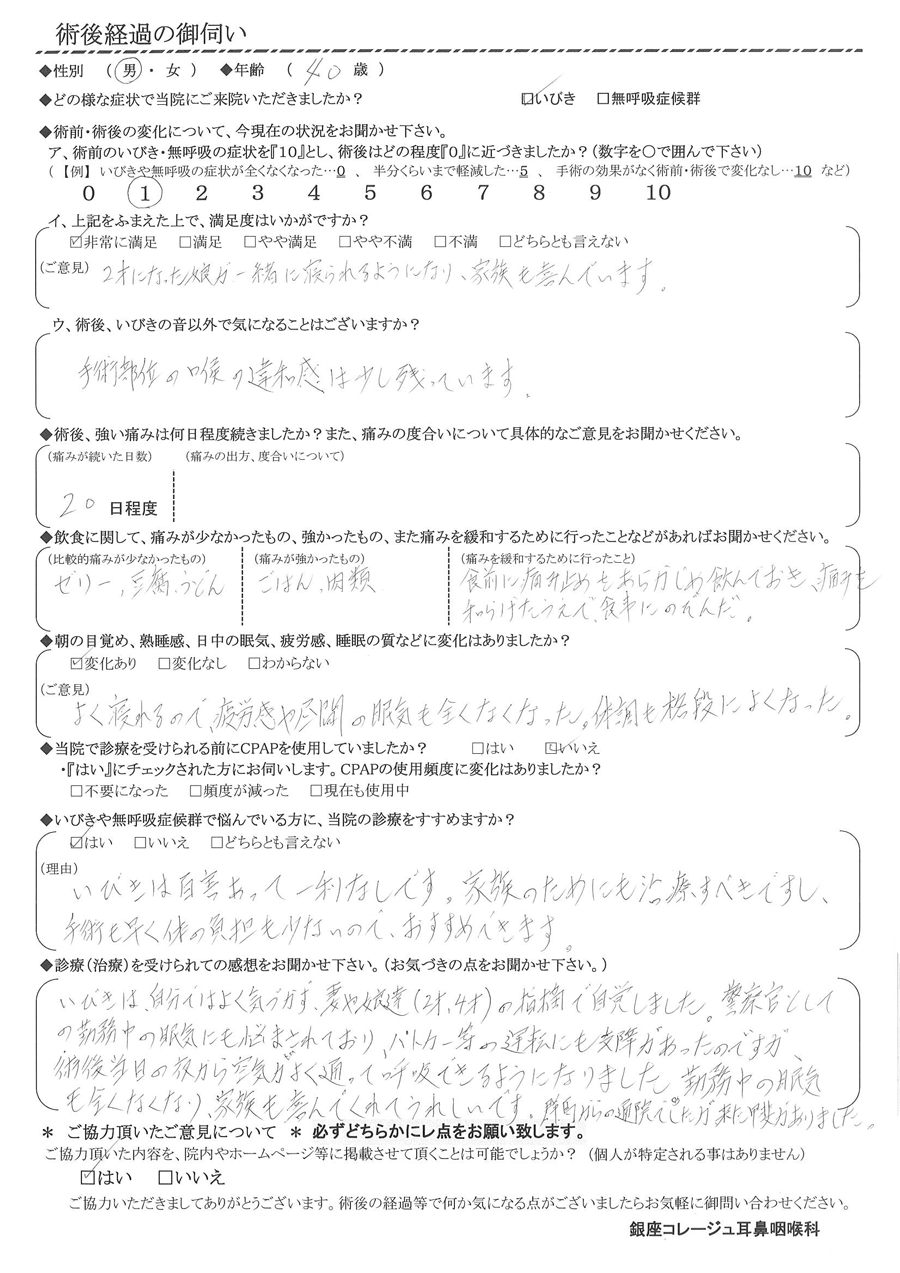 術後経過の御伺い
◆性別 （ 男 ・ 女 ） ◆年齢 （ 40 歳 ）
◆どの様な症状で当院にご来院いただきましたか？ ☑いびき □無呼吸症候群
◆術前・術後の変化について、今現在の状況をお聞かせ下さい。
ア、術前のいびき・無呼吸の症状を『10』とし、術後はどの程度『0』に近づきましたか？（数字を〇で囲んで下さい）
（【例】いびきや無呼吸の症状が全くなくなった…0 、 半分くらいまで軽減した…5 、 手術の効果がなく術前・術後で変化なし…10 など）
0 1 2 3 4 5 6 7 8 9 10
イ、上記をふまえた上で、満足度はいかがですか？
☑非常に満足 □満足 □やや満足 □やや不満 □不満 □どちらとも言えない
（ご意見） 2才になった娘が一緒に寝られるようになり、家族も喜んでいます。
ウ、術後、いびきの音以外で気になることはございますか？
手術部位の喉の違和感は少し残っています。
◆術後、強い痛みは何日程度続きましたか？また、痛みの度合いについて具体的なご意見をお聞かせください。
（痛みが続いた日数） （痛みの出方、度合いについて）
20 日程度
◆飲食に関して、痛みが少なかったもの、強かったもの、また痛みを緩和するために行ったことなどがあればお聞かせください。
（比較的痛みが少なかったもの） （痛みが強かったもの） （痛みを緩和するために行ったこと）
ゼリー、豆腐、うどん ごはん、肉類 食前に痛み止めをあらかじめ飲んでおき、痛みを
和らげたうえで、食事にのぞんだ。
◆朝の目覚め、熟睡感、日中の眠気、疲労感、睡眠の質などに変化はありましたか？
☑変化あり □変化なし □わからない
（ご意見）
よく寝れるので、疲労感や昼間の眠気も全くなくなった。体調も格段によくなった。
◆当院で診療を受けられる前にCPAPを使用していましたか？ □はい ☑いいえ
・『はい』にチェックされた方にお伺いします。CPAPの使用頻度に変化はありましたか？
□不要になった □頻度が減った □現在も使用中
◆いびきや無呼吸症候群で悩んでいる方に、当院の診療をすすめますか？
☑はい □いいえ □どちらとも言えない
（理由）
いびきは百害あって一利なしです。家族のためにも治療すべきですし、
手術も早く体の負担も少ないので、おすすめできます。
◆診療（治療）を受けられての感想をお聞かせ下さい。（お気づきの点をお聞かせ下さい。）
いびきは、自分ではよく気づかず、妻や娘達（2才、4才）の指摘で自覚しました。警察官として
の勤務中の眠気にも悩まされており、パトカー等の運転にも支障があったのですが、
術後当日の夜から空気がよく通って呼吸できるようになりました。勤務中の眠気
も全くなくなり、家族も喜んでくれてうれしいです。静岡からの通院でしたが来た甲斐がありました。
＊ ご協力頂いたご意見について ＊ 必ずどちらかにレ点をお願い致します。
ご協力頂いた内容を、院内やホームページ等に掲載させて頂くことは可能でしょうか？（個人が特定される事はありません）
☑はい □いいえ
ご協力いただきましてありがとうございます。術後の経過等で何か気になる点がございましたらお気軽に御問い合わせください。
銀座コレージュ耳鼻咽喉科